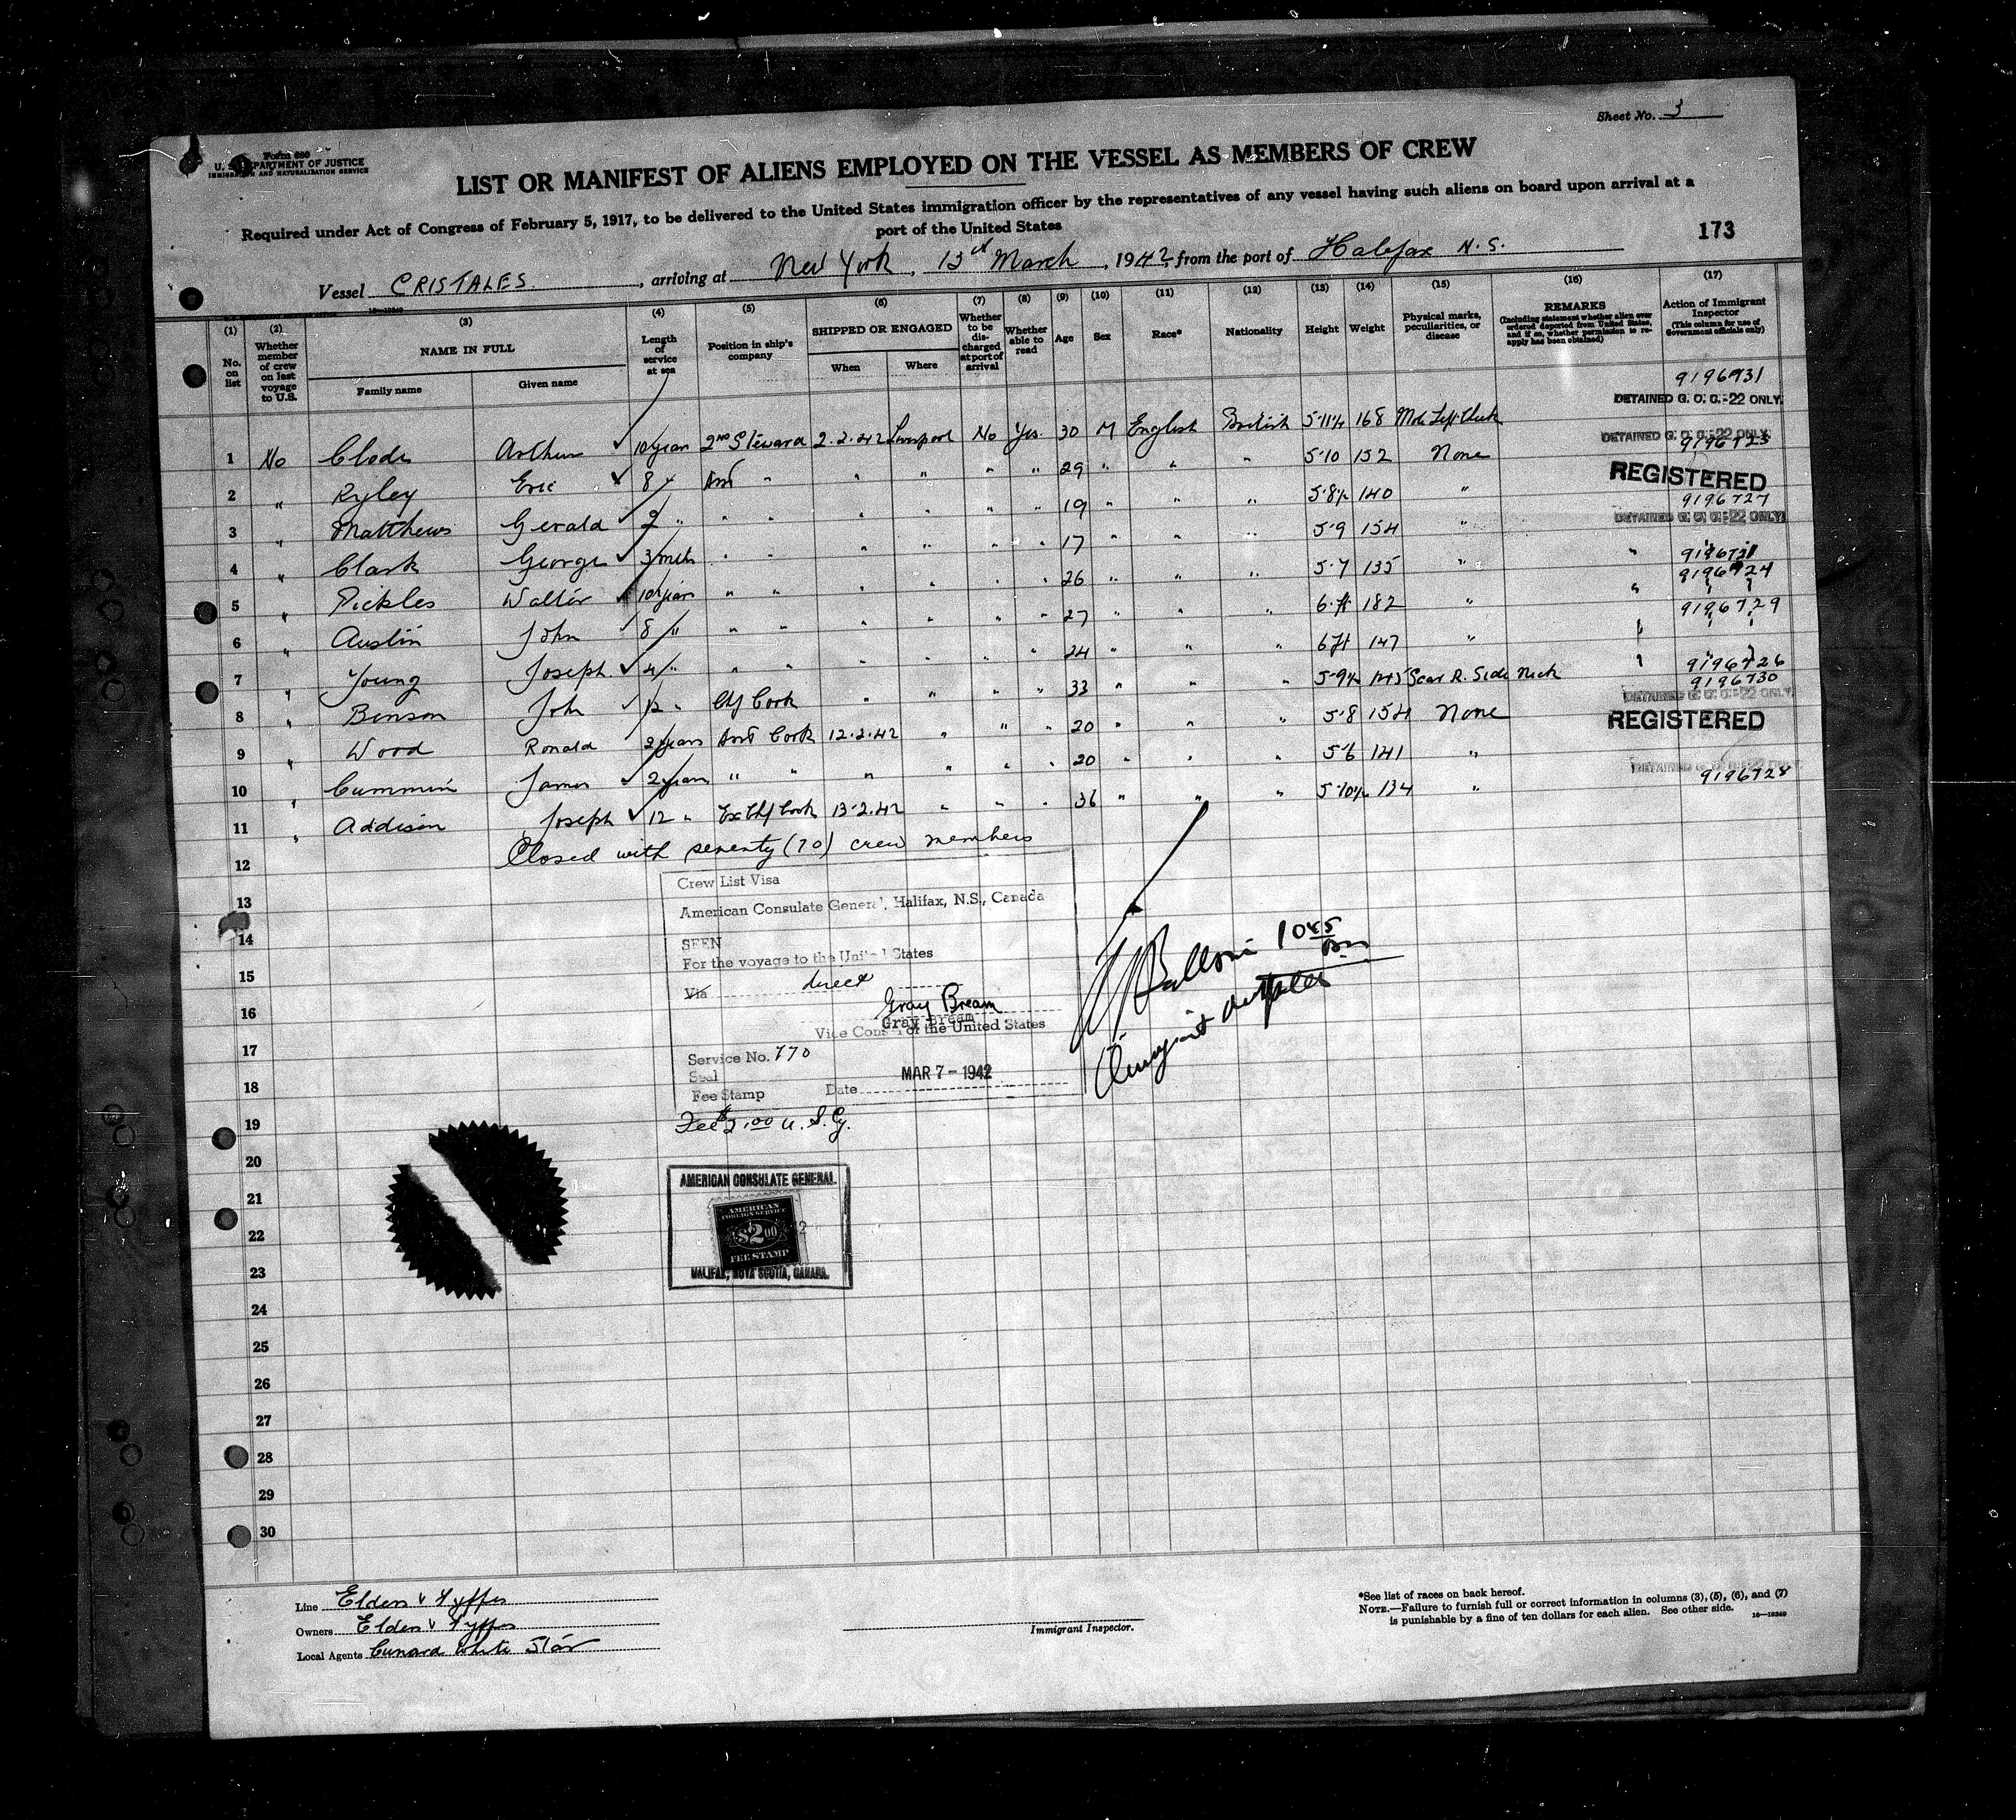 Sheet No. 3
Form 680
U. S. DEPARTMENT OF JUSTICE
IMMIGRATION AND NATURALIZATION SERVICE
LIST OR MANIFEST OF ALIENS EMPLOYED ON THE VESSEL AS MEMBERS OF CREW
Required under Act of Congress of February 5, 1917, to be delivered to the United States immigration officer by the representatives of any vessel having such aliens on board upon arrival at a
port of the United States
173
Vessel CRISTALES. , arriving at New York , 13th March , 1942, from the port of Halifax N.S.
(1) No. on list
(2) Whether member of crew on last voyage to U.S.
(3) NAME IN FULL Family name Given name
(4) Length of service at sea
(5) Position in ship's company
(6) SHIPPED OR ENGAGED When Where
(7) Whether to be discharged at port of arrival
(8) Whether able to read
(9) Age
(10) Sex
(11) Race*
(12) Nationality
(13) Height
(14) Weight
(15) Physical marks, peculiarities, or disease
(16) REMARKS (Including statement whether alien ever ordered deported from United States, and if so, whether permission to reapply has been obtained)
(17) Action of Immigrant Inspector (This column for use of Government officials only)
9196731
DETAINED G. O. C.-22 ONLY.
1 No Clode Arthur 10 years 2nd Steward 2.2.42 Liverpool No Yes. 30 M English British 5·11½ 168 Mole Left Cheek
DETAINED G. O. C.-22 ONLY.
9196723
2 " Ryley Eric 8 " Asst " " " " " 29 " " " 5·10 152 None
REGISTERED
3 " Matthews Gerald 2 " " " " " " " 19 " " " 5·8½ 140 "
9196727
DETAINED G. O. C.-22 ONLY.
4 " Clark George 3 mths " " " " " " 17 " " " 5·9 154 "
5 " Pickles Walter 10 years " " " " " " 26 " " " 5·7 135 "
9196724
6 " Austin John 8 " " " " " " " 27 " " " 6 ft 182 "
9196729
7 " Young Joseph. 4 " " " " " " " 24 " " " 6 ft 147 "
9196726
8 " Benson John 12 " Chf Cook " " " " 33 " " " 5·9½ 145 Scar R. Side Neck
9196730
DETAINED G. O. C.-22 ONLY.
9 " Wood Ronald 2 years Asst Cook 12.2.42 " " " 20 " " " 5·8 154 None
REGISTERED
10 " Cummin James 2 years " " " " " " 20 " " " 5·6 141 "
DETAINED G. O. C.-22 ONLY.
9196728
11 " Addison Joseph 12 " Ex Chf Cook 13.2.42 " " " 36 " " " 5·10½ 134 "
12 Closed with seventy (70) crew members
13
14
15
16
17
18
19
20
21
22
23
24
25
26
27
28
29
30
Crew List Visa
American Consulate General, Halifax, N.S., Canada
SEEN
For the voyage to the United States
Via direct
Gray Bream
Gray Bream
Vice Consul of the United States
Service No. 770
Seal
MAR 7 - 1942
Fee Stamp Date
Fee $2.00 U.S. Cy.
AMERICAN CONSULATE GENERAL
AMERICAN
FOREIGN SERVICE
$2.00
FEE STAMP
HALIFAX, NOVA SCOTIA, CANADA.
Line Elders & Fyffes
Owners Elders & Fyffes
Local Agents Cunard White Star
Immigrant Inspector.
*See list of races on back hereof.
NOTE.—Failure to furnish full or correct information in columns (3), (5), (6), and (7)
is punishable by a fine of ten dollars for each alien. See other side. 16—19349